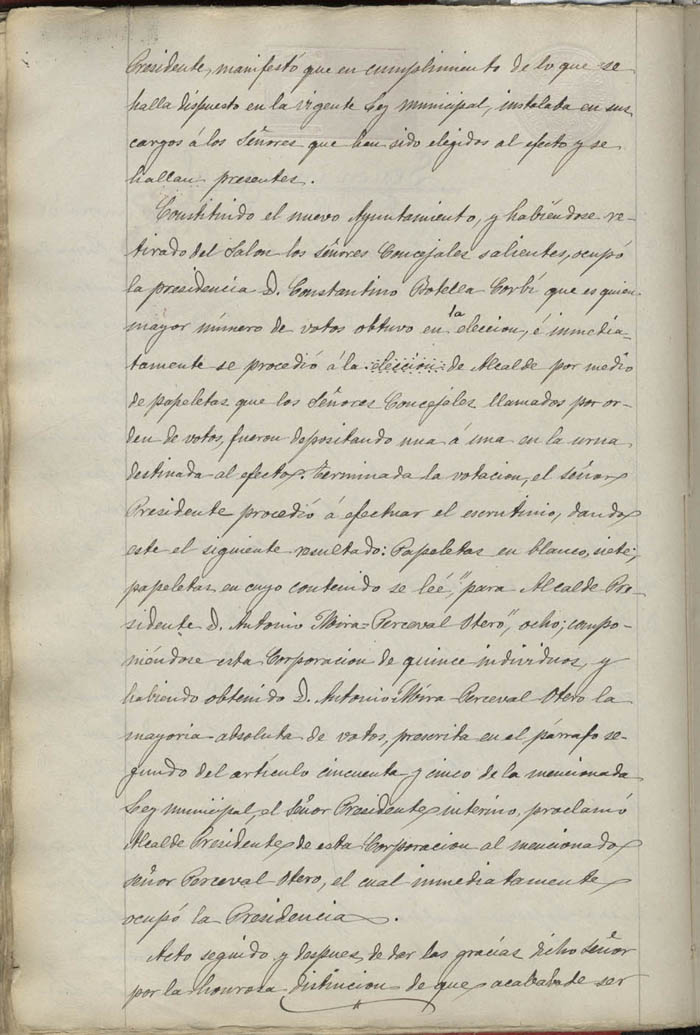 Presidente, manifestó que en cumplimiento de lo que se
halla dispuesto en la vigente Ley municipal, instalaba en sus
cargos á los Señores que han sido elegidos al efecto y se
hallan presentes.
Constituido el nuevo Ayuntamiento, y habiéndose re-
tirado del Salon los señores Concejales salientes, ocupó
la presidencia D. Constantino Botella Corbí que es quien
mayor número de votos obtuvo en la eleccion, é inmedia-
tamente se procedió á la eleccion de Alcalde por medio
de papeletas que los Señores Concejales llamados por or-
den de votos, fueron depositando una á una en la urna
destinada al efecto. Terminada la votacion, el señor
Presidente procedió á efectuar el escrutinio, dando
este el siguiente resultado: Papeletas en blanco, siete;
papeletas en cuyo contenido se leé, "para Alcalde Pre-
sidente D. Antonio Mira-Perceval Otero", ocho; compo-
niéndose esta Corporacion de quince individuos, y
habiendo obtenido D. Antonio Mira-Perceval Otero la
mayoria absoluta de votos, prescrita en el párrafo se-
gundo del artículo cincuenta y cinco de la mencionada
Ley municipal, el señor Presidente interino, proclamó
Alcalde Presidente de esta Corporacion al mencionado
señor Perceval Otero, el cual inmediatamente
ocupó la Presidencia.
Acto seguido y despues de dar las gracias dicho Señor
por la honrosa distincion de que acababa de ser